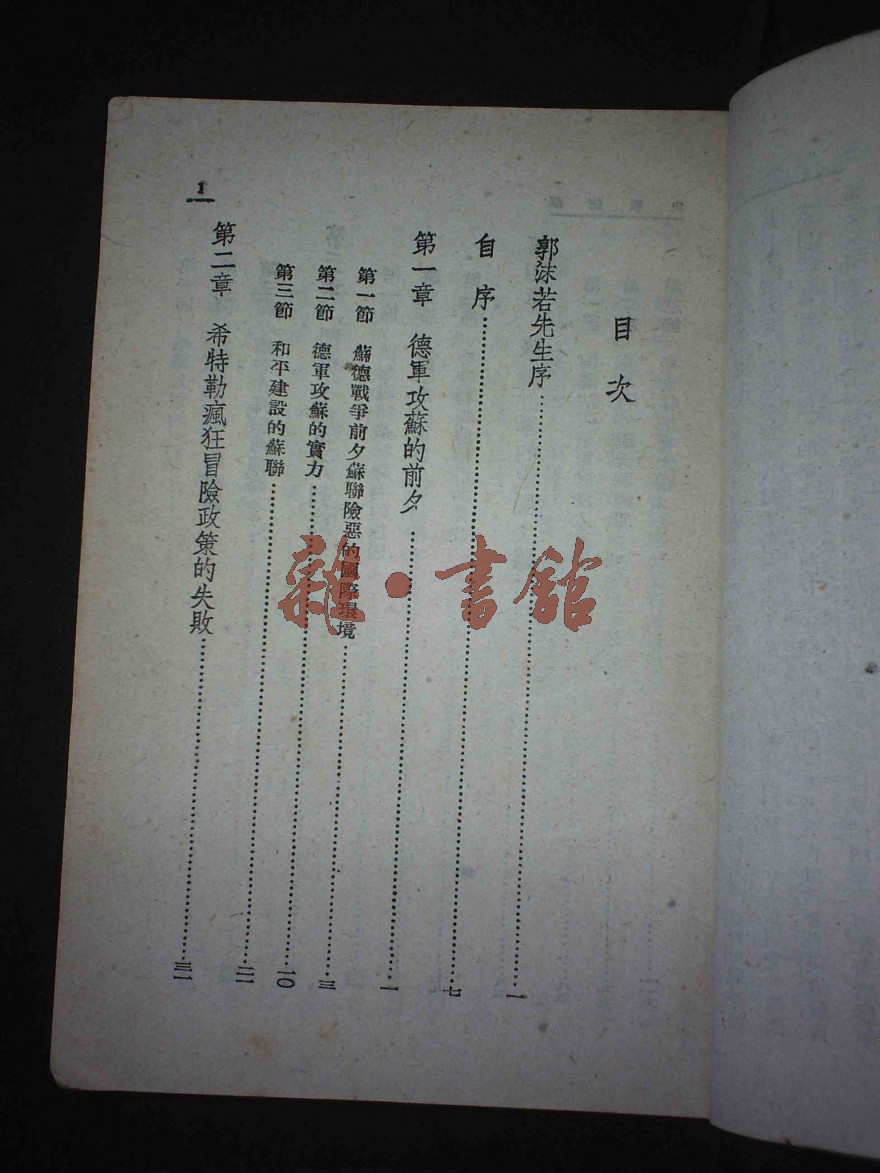 目次
郭沫若先生序……一
自序……七
第一章　德軍攻蘇的前夕……一
第一節　蘇德戰爭前夕蘇聯險惡的國際環境……三
第二節　德軍攻蘇的實力……一〇
第三節　和平建設的蘇聯……二一
第二章　希特勒瘋狂冒險政策的失敗……三一
1
雜·書館